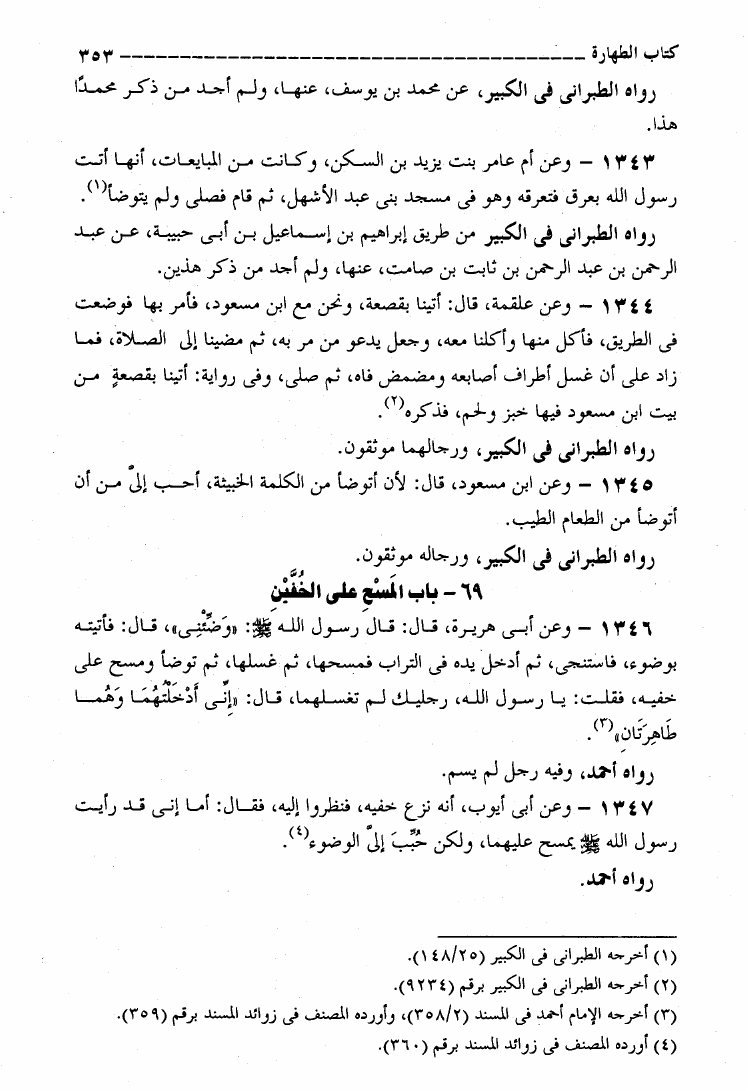 كتاب الطهارة ـــــــــــــــــــــــــــــــــــــــــــــــــ ٣٥٣
رواه الطبرانى فى الكبير، عن محمد بن يوسف، عنها، ولم أجد من ذكر محمدًا
هذا.
١٣٤٣ – وعن أم عامر بنت يزيد بن السكن، وكانت من المبايعات، أنها أتت
رسول الله بعرق فتعرقه وهو فى مسجد بنى عبد الأشهل، ثم قام فصلى ولم يتوضأ(١).
رواه الطبرانى فى الكبير من طريق إبراهيم بن إسماعيل بن أبى حبيبة، عن عبد
الرحمن بن عبد الرحمن بن ثابت بن صامت، عنها، ولم أجد من ذكر هذين.
١٣٤٤ – وعن علقمة، قال: أتينا بقصعة، ونحن مع ابن مسعود، فأمر بها فوضعت
فى الطريق، فأكل منها وأكلنا معه، وجعل يدعو من مر به، ثم مضينا إلى الصلاة، فما
زاد على أن غسل أطراف أصابعه ومضمض فاه، ثم صلى، وفى رواية: أتينا بقصعةٍ من
بيت ابن مسعود فيها خبز ولحم، فذكره(٢).
رواه الطبرانى فى الكبير، ورجالهما موثقون.
١٣٤٥ – وعن ابن مسعود، قال: لأن أتوضأ من الكلمة الخبيثة، أحب إلىَّ من أن
أتوضأ من الطعام الطيب.
رواه الطبرانى فى الكبير، ورجاله موثقون.
٦٩ – باب المَسْحِ على الخُفَّيْنِ
١٣٤٦ – وعن أبى هريرة، قال: قال رسول الله ﷺ: «وَضِّئْنِى»، قال: فأتيته
بوضوء، فاستنجى، ثم أدخل يده فى التراب فمسحها، ثم غسلها، ثم توضأ ومسح على
خفيه، فقلت: يا رسول الله، رجليك لم تغسلهما، قال: «إِنِّى أَدْخَلْتُهُمَا وَهُمَا
طَاهِرَتَانِ»(٣).
رواه أحمد، وفيه رجل لم يسم.
١٣٤٧ – وعن أبى أيوب، أنه نزع خفيه، فنظروا إليه، فقال: أما إنى قد رأيت
رسول الله ﷺ يمسح عليهما، ولكن حُبِّبَ إلىَّ الوضوء(٤).
رواه أحمد.
(١) أخرجه الطبرانى فى الكبير (١٤٨/٢٥).
(٢) أخرجه الطبرانى فى الكبير برقم (٩٢٣٤).
(٣) أخرجه الإمام أحمد فى المسند (٣٥٨/٢)، وأورده المصنف فى زوائد المسند برقم (٣٥٩).
(٤) أورده المصنف فى زوائد المسند برقم (٣٦٠).